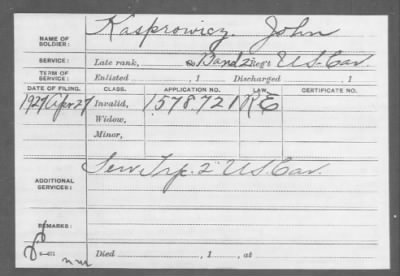 NAME OF SOLDIER: Kasprowicz, John
SERVICE: Late rank, Band 2 Regt U.S. Cav.
TERM OF SERVICE: Enlisted , 1 Discharged , 1
DATE OF FILING. CLASS. APPLICATION NO. LAW. CERTIFICATE NO.
1927 Apr 27 Invalid, 1578.721 R E
Widow,
Minor,
ADDITIONAL SERVICES: Serv Trp. 2" U.S. Cav.
REMARKS:
Died , 1 , at